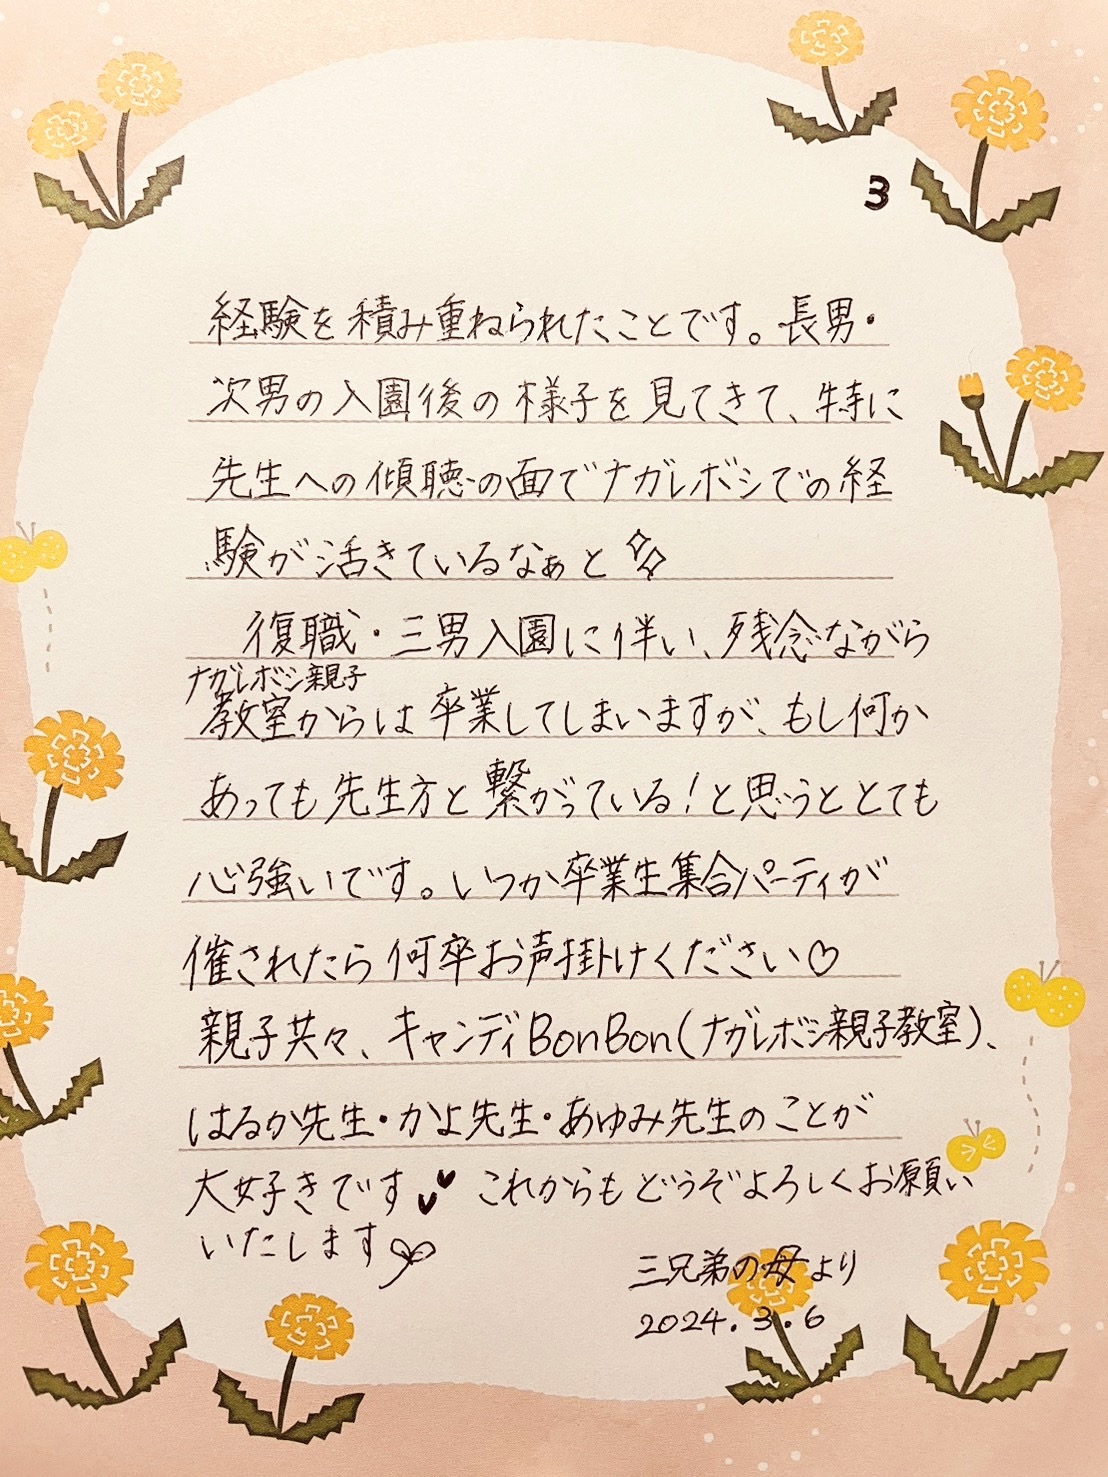 3
経験を積み重ねられたことです。長男・
次男の入園後の様子を見てきて、特に
先生への傾聴の面でナガレボシでの経
験が活きているなぁと
復職・三男入園に伴い、残念ながら
ナガレボシ親子
教室からは卒業してしまいますが、もし何か
あっても先生方と繋がっている!と思うととても
心強いです。いつか卒業生集合パーティが
催されたら何卒お声掛けください♡
親子共々、キャンディBonBon(ナガレボシ親子教室)、
はるか先生・かよ先生・あゆみ先生のことが
大好きです これからもどうぞよろしくお願い
いたします
三兄弟の母より
2024.3.6